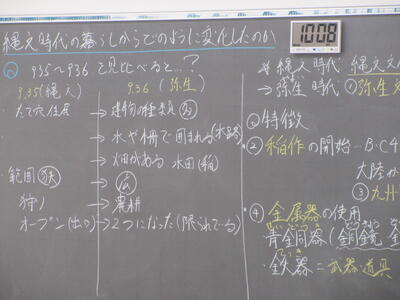 縄文時代の暮らしからどのように変化したのか
10:08
P.35〜P.36と見比べると…？
P.35(縄文)
P.36(弥生)
たて穴住居 → 建物の種類 多
→ 水や柵で囲まれる(水路)
→ 畑がある 水田(稲)
・範囲 狭 → 広
狩り → 農耕
オープン(出口) → 2つになった(限られている)
縄文時代 縄文
→ 弥生時代 ① 弥生
特徴
② 稲作の開始…B.C4
大陸か
③ 九州
④ 金属器の使用
青銅器(銅鏡
・鉄器=武器道具